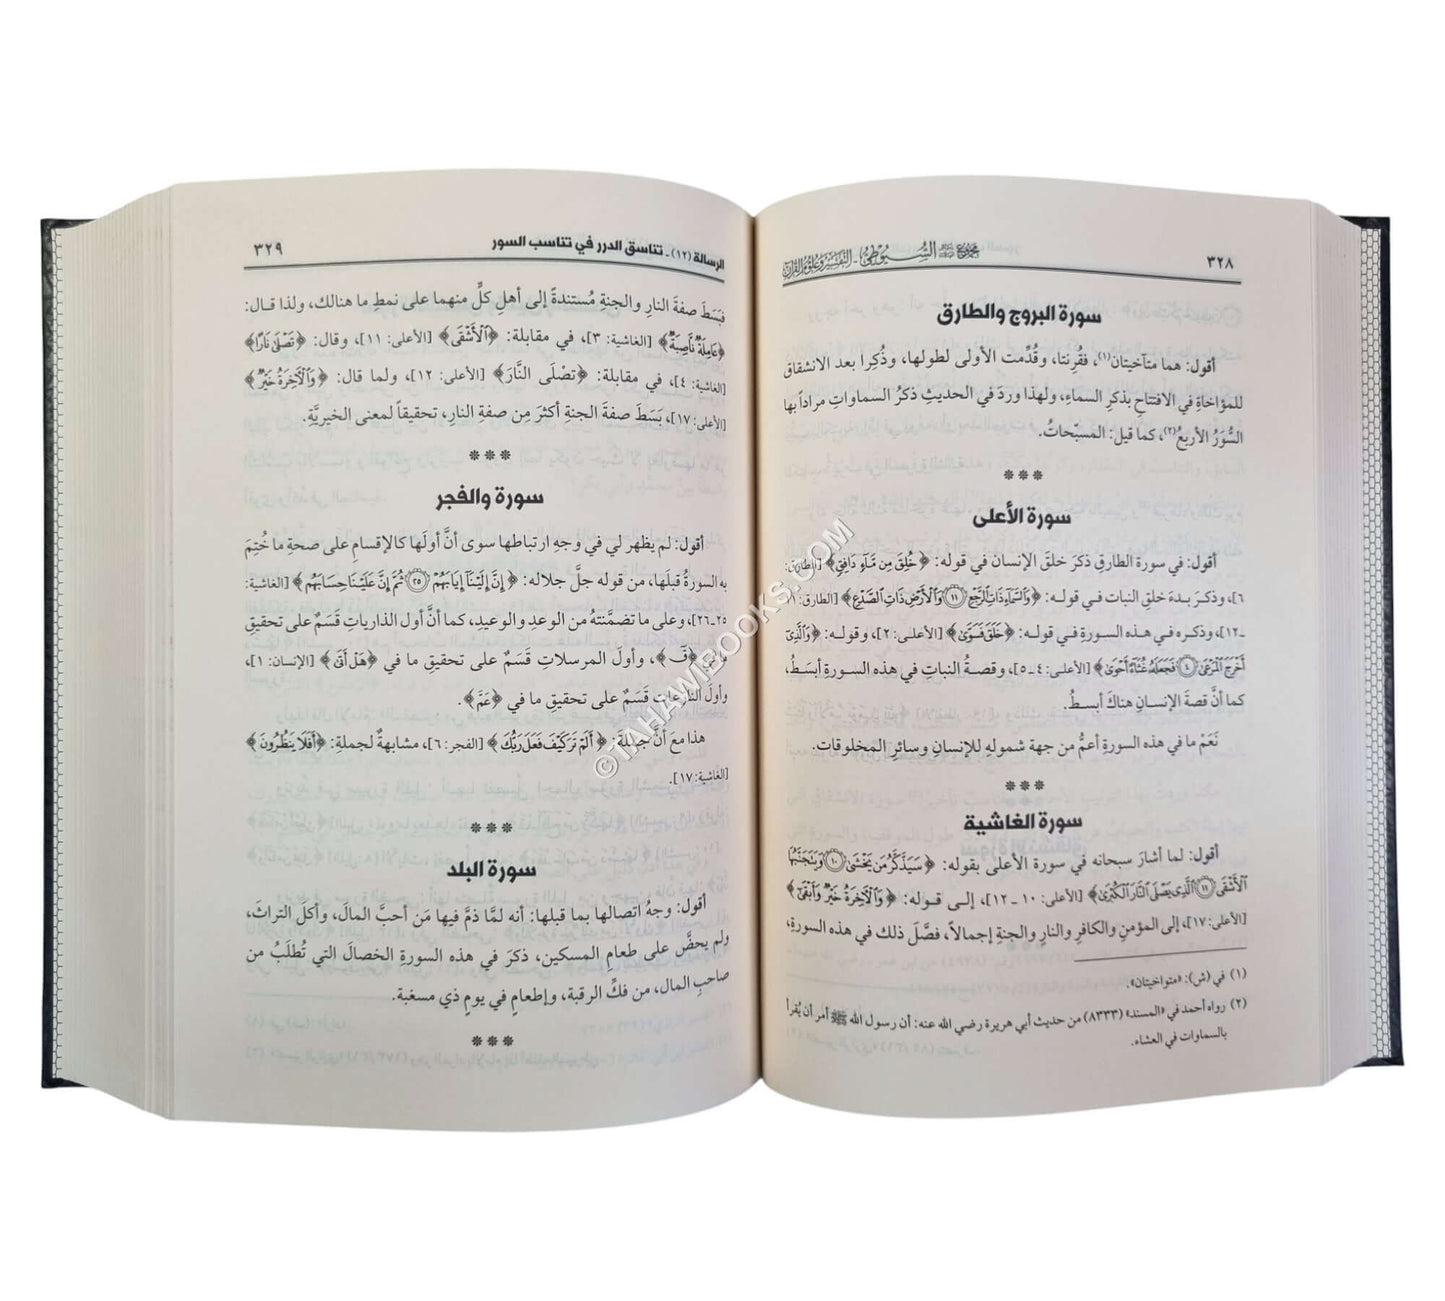 ٣٢٨
مجموع رسائل السيوطي - التفسير وعلوم القرآن
سورة البروج والطارق
أقول: هما متآخيتان(١)، فقُرِنتا، وقُدِّمت الأولى لطولها، وذُكِرا بعد الانشقاق
للمؤاخاةِ في الافتتاحِ بذكرِ السماءِ، ولهذا وردَ في الحديثِ ذكرُ السماواتِ مراداً بها
السُّوَرُ الأربعُ(٢)، كما قيل: المسبّحاتُ.
***
سورة الأعلى
أقول: في سورة الطارقِ ذكرَ خلقَ الإنسان في قوله: ﴿خُلِقَ مِن مَّآءٖ دَافِقٖ﴾ [الطارق:
٦]، وذكرَ بدءَ خلقِ النبات في قوله: ﴿وَٱلسَّمَآءِ ذَاتِ ٱلرَّجۡعِ ۝١١ وَٱلۡأَرۡضِ ذَاتِ ٱلصَّدۡعِ﴾ [الطارق: ١١
-١٢]، وذكره في هذه السورةِ في قوله: ﴿خَلَقَ فَسَوَّىٰ﴾ [الأعلى: ٢]، وقوله: ﴿وَٱلَّذِيٓ
أَخۡرَجَ ٱلۡمَرۡعَىٰ ۝٤ فَجَعَلَهُۥ غُثَآءً أَحۡوَىٰ﴾ [الأعلى: ٤ـ ٥]، وقصةُ النباتِ في هذه السورةِ أبسَطُ،
كما أنَّ قصةَ الإنسانِ هناكَ أبسطُ.
نَعَمْ ما في هذه السورةِ أعمُّ من جهة شمولهِ للإنسانِ وسائرِ المخلوقات.
***
سورة الغاشية
أقول: لما أشارَ سبحانه في سورة الأعلى بقوله: ﴿سَيَذَّكَّرُ مَن يَخۡشَىٰ ۝١٠ وَيَتَجَنَّبُهَا
ٱلۡأَشۡقَى ۝١١ ٱلَّذِي يَصۡلَى ٱلنَّارَ ٱلۡكُبۡرَىٰ﴾ [الأعلى: ١٠ ـ ١٢]، إلى قوله: ﴿وَٱلۡأٓخِرَةُ خَيۡرٞ وَأَبۡقَىٰٓ﴾
[الأعلى: ١٧]، إلى المؤمنِ والكافرِ والنارِ والجنةِ إجمالاً، فصَّلَ ذلك في هذه السورةِ،
(١) في (ش): «متواخيتان».
(٢) رواه أحمد في «المسند» (٨٣٣٣) من حديث أبي هريرة رضي الله عنه: أن رسول الله ﷺ أمر أن يُقرأ
بالسماوات في العشاء.
الرسالة (١٢) - تناسق الدرر في تناسب السور
٣٢٩
فبَسَطَ صفةَ النارِ والجنةِ مُستندةً إلى أهلِ كلِّ منهما على نمطِ ما هنالك، ولذا قال:
﴿عَامِلَةٞ نَّاصِبَةٞ﴾ [الغاشية: ٣]، في مقابلة: ﴿ٱلۡأَشۡقَى﴾ [الأعلى: ١١]، وقال: ﴿تَصۡلَىٰ نَارًا﴾
[الغاشية: ٤]، في مقابلة: ﴿تصْلَى النَّارَ﴾ [الأعلى: ١٢]، ولما قال: ﴿وَٱلۡأٓخِرَةُ خَيۡرٞ﴾
[الأعلى: ١٧]، بَسَطَ صفةَ الجنةِ أكثرَ مِن صفةِ النارِ، تحقيقاً لمعنى الخيريَّةِ.
***
سورة والفجر
أقول: لم يظهر لي في وجهِ ارتباطها سوى أنَّ أولَها كالإقسامِ على صحةِ ما خُتِمَ
به السورةُ قبلَها، من قوله جلَّ جلاله: ﴿إِنَّ إِلَيۡنَآ إِيَابَهُمۡ ۝٢٥ ثُمَّ إِنَّ عَلَيۡنَا حِسَابَهُم﴾ [الغاشية:
٢٥-٢٦]، وعلى ما تضمَّنتهُ من الوعدِ والوعيدِ، كما أنَّ أول الذارياتِ قَسَمٌ على تحقيقِ
ما في ﴿قٓ﴾، وأولَ المرسلاتِ قَسَمٌ على تحقيقِ ما في ﴿هَلۡ أَتَىٰ﴾ [الإنسان: ١]،
وأولَ النازعاتِ قَسَمٌ على تحقيقِ ما في ﴿عَمَّ﴾.
هذا معَ أنَّ جملةَ: ﴿أَلَمۡ تَرَ كَيۡفَ فَعَلَ رَبُّكَ﴾ [الفجر: ٦]، مشابهةٌ لجملةِ: ﴿أَفَلَا يَنظُرُونَ﴾
[الغاشية: ١٧].
***
سورة البلد
أقول: وجهُ اتصالها بما قبلها: أنه لمَّا ذمَّ فيها مَن أحبَّ المالَ، وأكلَ التراثَ،
ولم يحضَّ على طعامِ المسكين، ذكرَ في هذه السورةِ الخصالَ التي تُطلَبُ من
صاحبِ المال، من فكِّ الرقبة، وإطعامٍ في يومٍ ذي مسغبة.
***
©TAHAMIBOOKS.COM